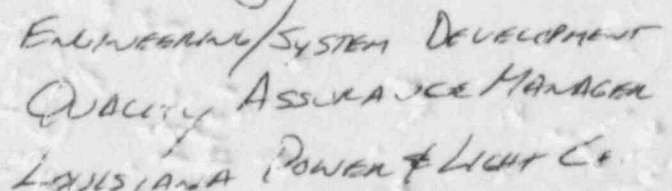 ENGINEERING/SYSTEM DEVELOPMENT
QUALITY ASSURANCE MANAGER
LOUISIANA POWER & LIGHT Co.